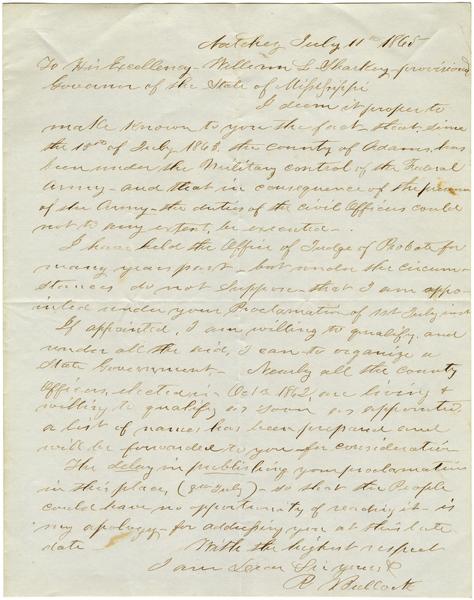 Natchez July 11th 1865
To His Excellency - William L Sharkey - provisional
Governor of the State of Mississippi
I deem it proper to
make known to you the fact that, since
the 13th of July 1863, the county of Adams, has
been under the Military control of the Federal
Army - and that in consequence of the presence
of the Army - the duties of the civil Officers could
not to any extent, be executed -
I have held the Office of Judge of Probate for
many years past - but under the circum
stances do not suppose - that I am appo-
inted under your Proclamation of 1st July inst
If appointed, I am willing to qualify, and
render all the aid, I can to organize a
State Government - Nearly all the county
Officers, elected in - Octr 1862, are living &
willing to qualify as soon as appointed
a list of names has been prepared and
will be forwarded to you for consideration
The delay in publishing your proclamation
in this place, (8th July) - so that the People
could have no opportunity of reading it - is
my apology - for addressing you at this late
date - With the highest respect
I am Dear Sir yours &
R Bullock